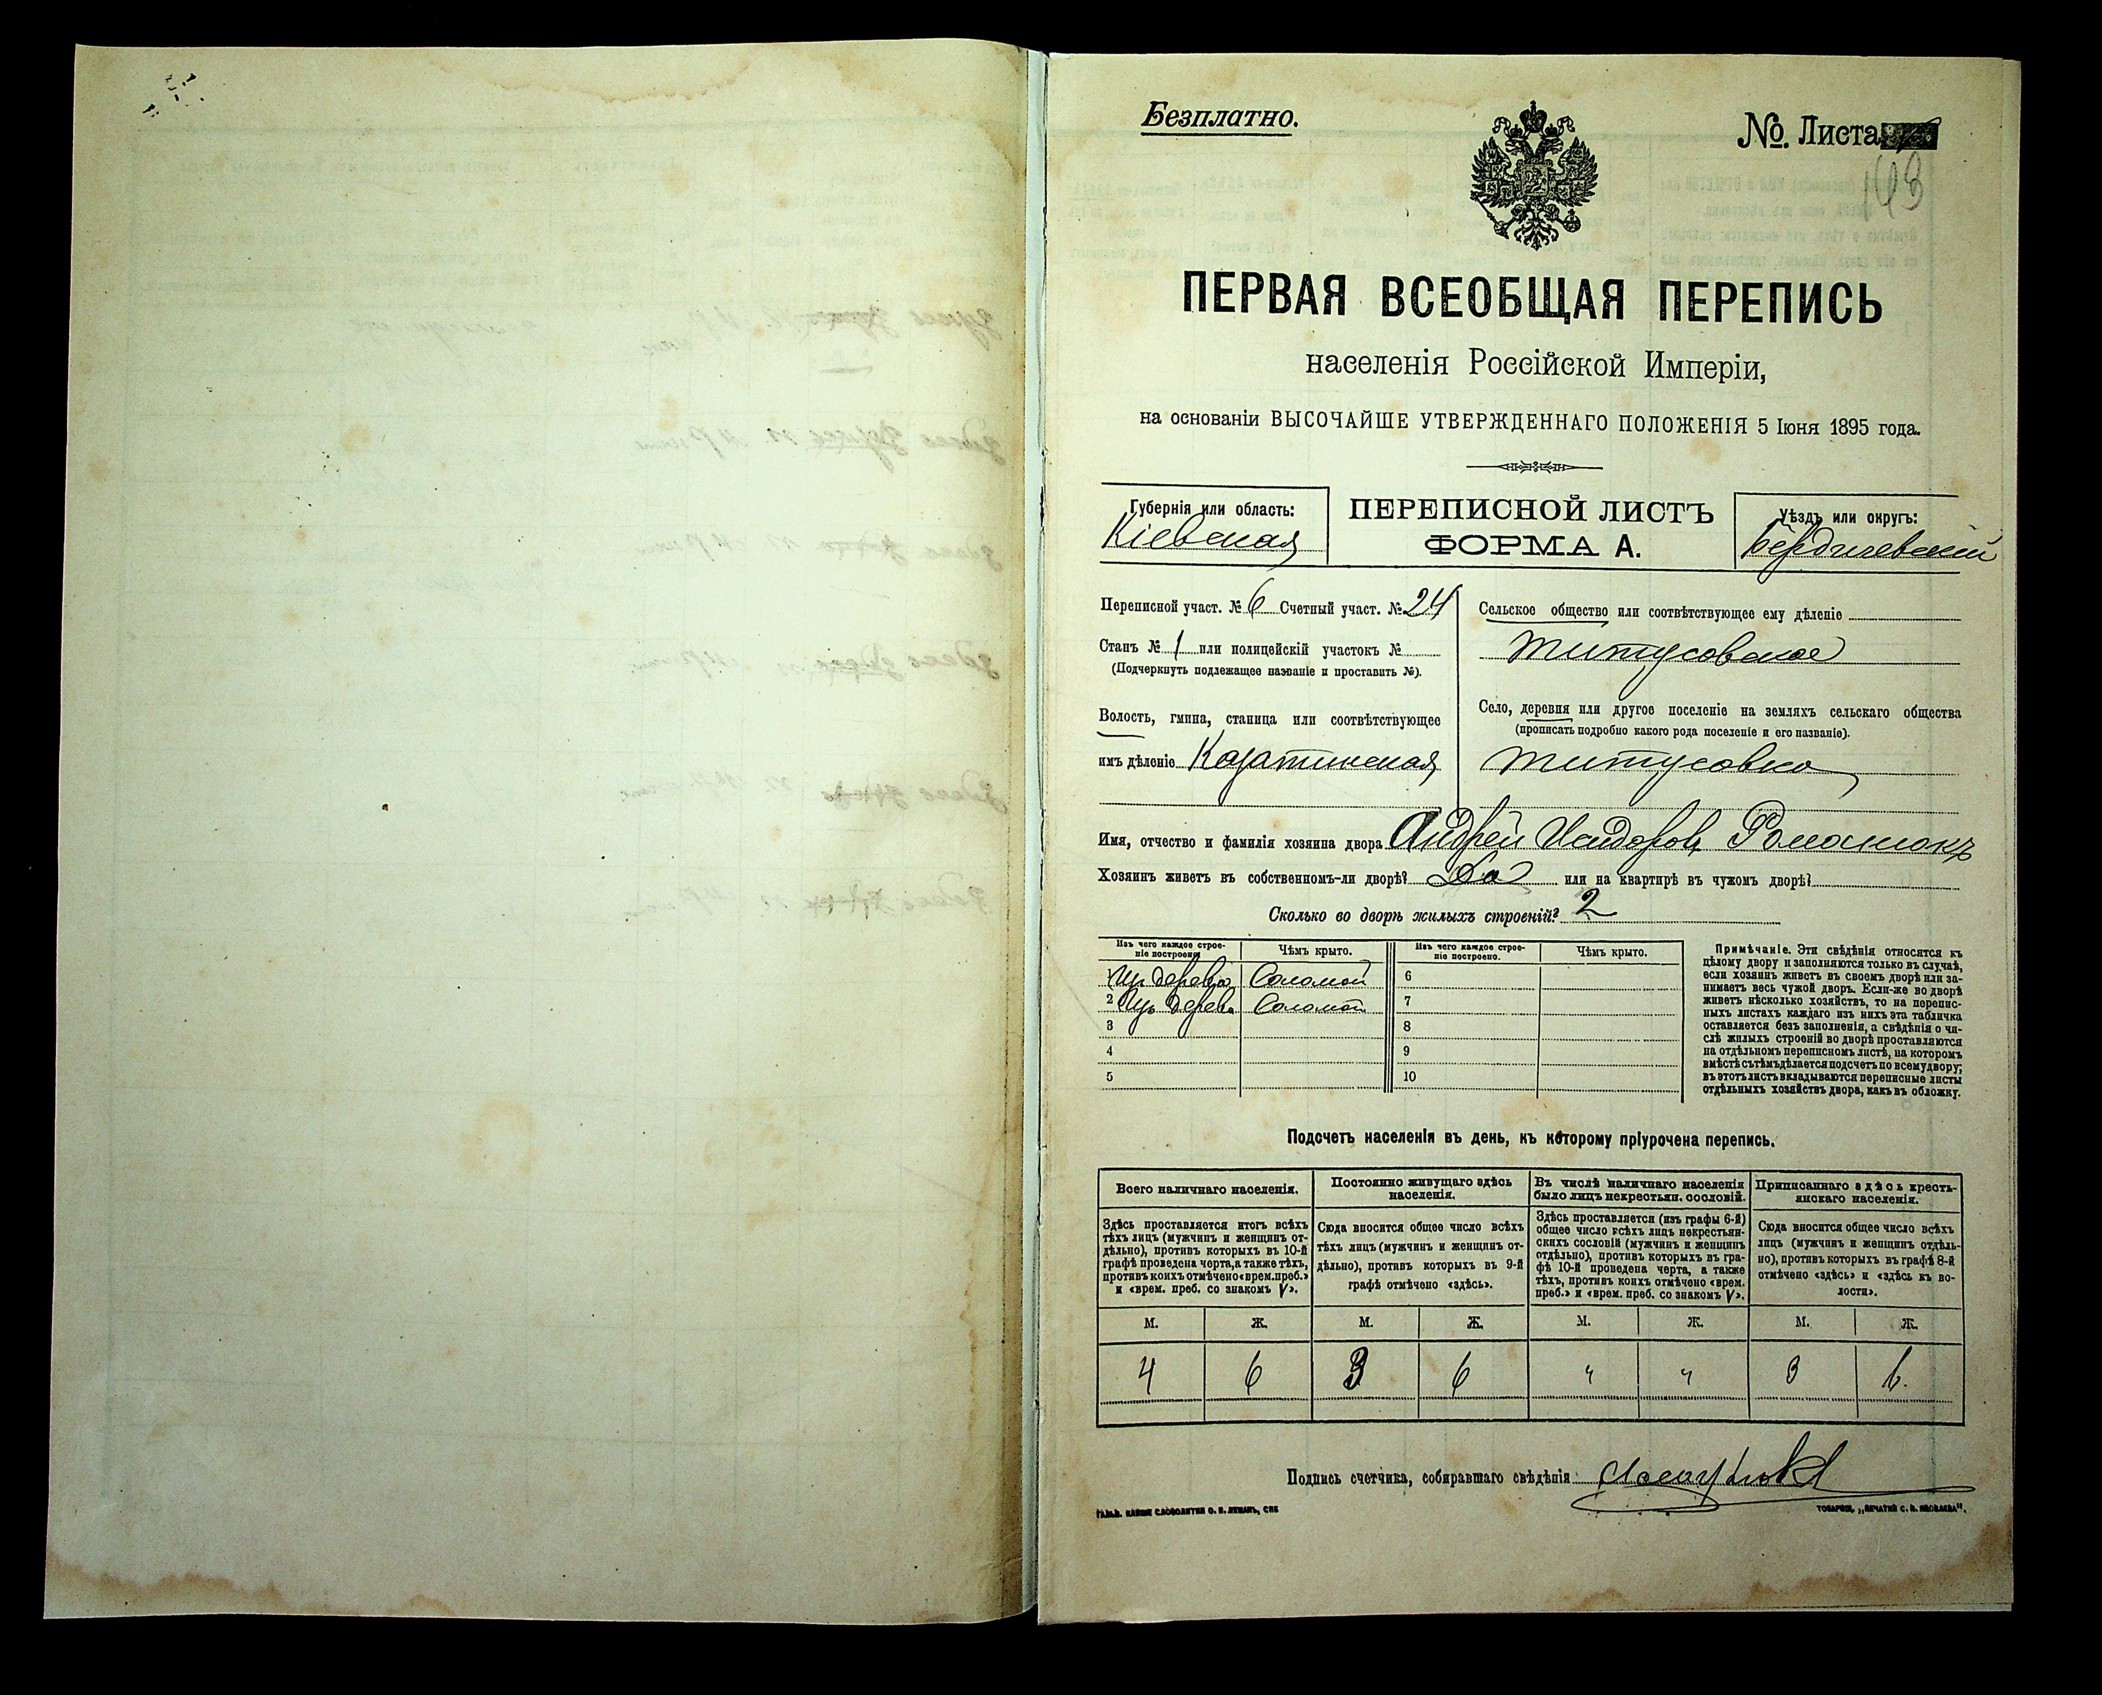 Безплатно.
№. Листа
143
ПЕРВАЯ ВСЕОБЩАЯ ПЕРЕПИСЬ
населенія Россійской Имперіи,
на основаніи ВЫСОЧАЙШЕ УТВЕРЖДЕННАГО ПОЛОЖЕНІЯ 5 Іюня 1895 года.
Губернія или область:
Кіевская
ПЕРЕПИСНОЙ ЛИСТЪ
ФОРМА А.
Уѣздъ или округъ:
Бердичевскій
Переписной участ. № 6 Счетный участ. № 24
Станъ № 1 или полицейскій участокъ №
(Подчеркнуть подлежащее названіе и проставить №).
Волость, гмина, станица или соотвѣтствующее
имъ дѣленіе Казатинская
Сельское общество или соотвѣтствующее ему дѣленіе
Титусовское
Село, деревня или другое поселеніе на земляхъ сельскаго общества
(прописать подробно какого рода поселеніе и его названіе).
Титусовка
Имя, отчество и фамилія хозяина двора Андрей Исидоров Романюкъ
Хозяинъ живетъ въ собственномъ-ли дворѣ? Да или на квартирѣ въ чужомъ дворѣ?
Сколько во дворѣ жилыхъ строеній? 2
Изъ чего каждое строе-
ніе построено.
Чѣмъ крыто.
Изъ чего каждое строе-
ніе построено.
Чѣмъ крыто.
1 Из дерева Соломой 6
2 Изъ дерева Соломой 7
3 8
4 9
5 10
Примѣчаніе. Эти свѣдѣнія относятся къ
цѣлому двору и заполняются только въ случаѣ,
если хозяинъ живетъ въ своемъ дворѣ или за-
нимаетъ весь чужой дворъ. Если-же во дворѣ
живетъ нѣсколько хозяйствъ, то на перепис-
ныхъ листахъ каждаго изъ нихъ эта табличка
оставляется безъ заполненія, а свѣдѣнія о чи-
слѣ жилыхъ строеній во дворѣ проставляются
на отдѣльномъ переписномъ листѣ, на которомъ
вмѣстѣ съ тѣмъ дѣлается подсчетъ по всему двору;
въ этотъ листъ вкладываются переписные листы
отдѣльныхъ хозяйствъ двора, какъ въ обложку.
Подсчетъ населенія въ день, къ которому пріурочена перепись.
Всего наличнаго населенія.
Здѣсь проставляется итогъ всѣхъ
тѣхъ лицъ (мужчинъ и женщинъ от-
дѣльно), противъ которыхъ въ 10-й
графѣ проведена черта, а также тѣхъ,
противъ коихъ отмѣчено «врем. преб.»
и «врем. преб. со знакомъ V».
Постоянно живущаго здѣсь
населенія.
Сюда вносится общее число всѣхъ
тѣхъ лицъ (мужчинъ и женщинъ от-
дѣльно), противъ которыхъ въ 9-й
графѣ отмѣчено «здѣсь».
Въ числѣ наличнаго населенія
было лицъ некрестьян. сословій.
Здѣсь проставляется (изъ графы 6-й)
общее число всѣхъ лицъ некрестьян-
скихъ сословій (мужчинъ и женщинъ
отдѣльно), противъ которыхъ въ гра-
фѣ 10-й проведена черта, а также
тѣхъ, противъ коихъ отмѣчено «врем.
преб.» и «врем. преб. со знакомъ V».
Приписаннаго здѣсь кресть-
янскаго населенія.
Сюда вносится общее число всѣхъ
лицъ (мужчинъ и женщинъ отдѣль-
но), противъ которыхъ въ графѣ 8-й
отмѣчено «здѣсь» и «здѣсь къ во-
лости».
М. Ж. М. Ж. М. Ж. М. Ж.
4 6 3 6 " " 3 6.
Подпись счетчика, собиравшаго свѣдѣнія
ТОВАРИЩ. „ПЕЧАТНИ С. П. ЯКОВЛЕВА".